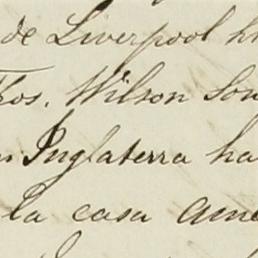 de Liverpool
Thos. Wilson Son
Inglaterra ha
la casa ame